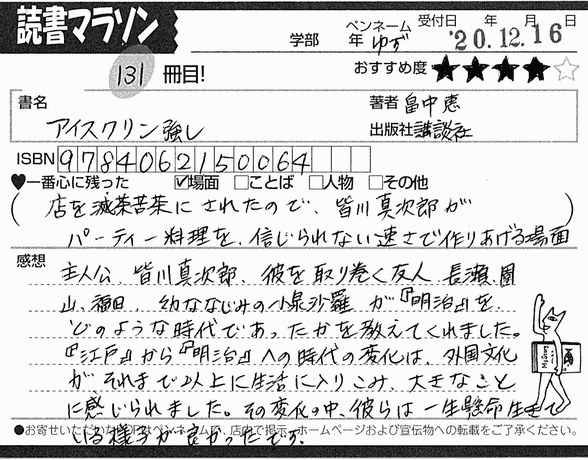 読書マラソン
131 冊目!
学部 年 ペンネーム ゆず 受付日 年 月 日
'20.12.16
おすすめ度 ★★★★☆
書名 アイスクリン強し
著者 畠中恵
出版社 講談社
ISBN 9784062150064
♥一番心に残った ☑場面 □ことば □人物 □その他
(店を滅茶苦茶にされたので、皆川真次郎が
パーティー料理を、信じられない速さで作りあげる場面)
感想
主人公、皆川真次郎、彼を取り巻く友人、長瀬、園
山、福田、幼ななじみの小泉沙羅が『明治』を
どのような時代であったかを教えてくれました。
『江戸』から『明治』への時代の変化は、外国文化
が、それまで以上に生活に入りこみ、大きなこと
に感じられました。その変化の中、彼らは一生懸命生きて
いる様子が良かったです。
●お寄せいただいたPOPはペンネームで、店内で掲示、ホームページおよび宣伝物への転載をご了承ください。